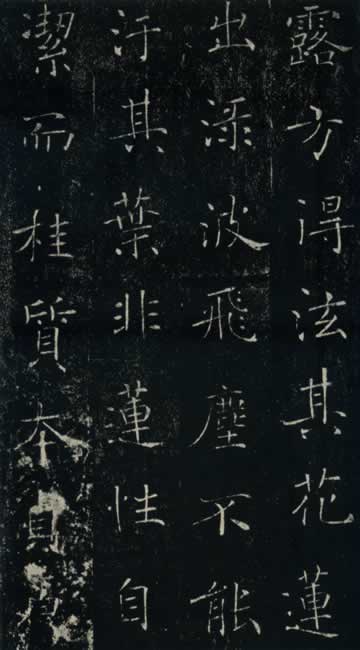 露方得泫其花蓮
出淥波飛塵不能
汙其葉非蓮性自
潔而桂質本貞良